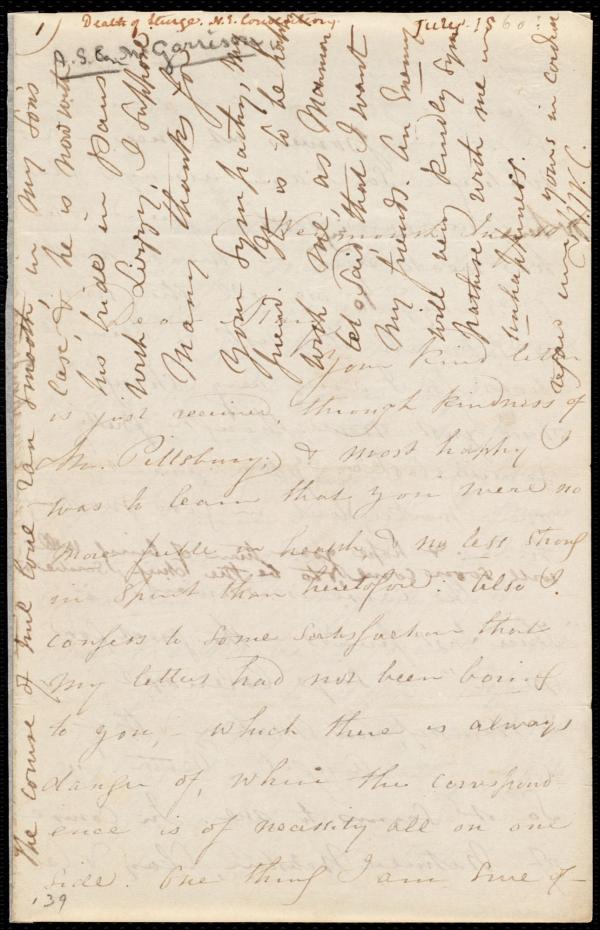 1) Death of Sturge. N.E. Convention. July 1860?
A. S. Co. Mr Garrison
Weymouth
Dear
Your kind letter
is just received, through kindness of
Mr. Pillsbury; & most happy I
was to learn that you were no
more feeble in health & no less strong
in spirit than heretofore. Also I
confess to some satisfaction that
my letters had not been boring
to you, – which there is always
danger of, where the correspond-
ence is of necessity all on one
side. One thing I am sure of –
139
The course of true love ran smooth, in my son's
case, & he is now with
his bride in Paris
with Lizzy, I suppose
Many thanks for
your sympathy, my
friend. It is to be
with me, as Mammon
let, said, that I want
my friends. An enemy
will very kindly sym-
pathise with me in
unhappiness.
yours in cordial
W.